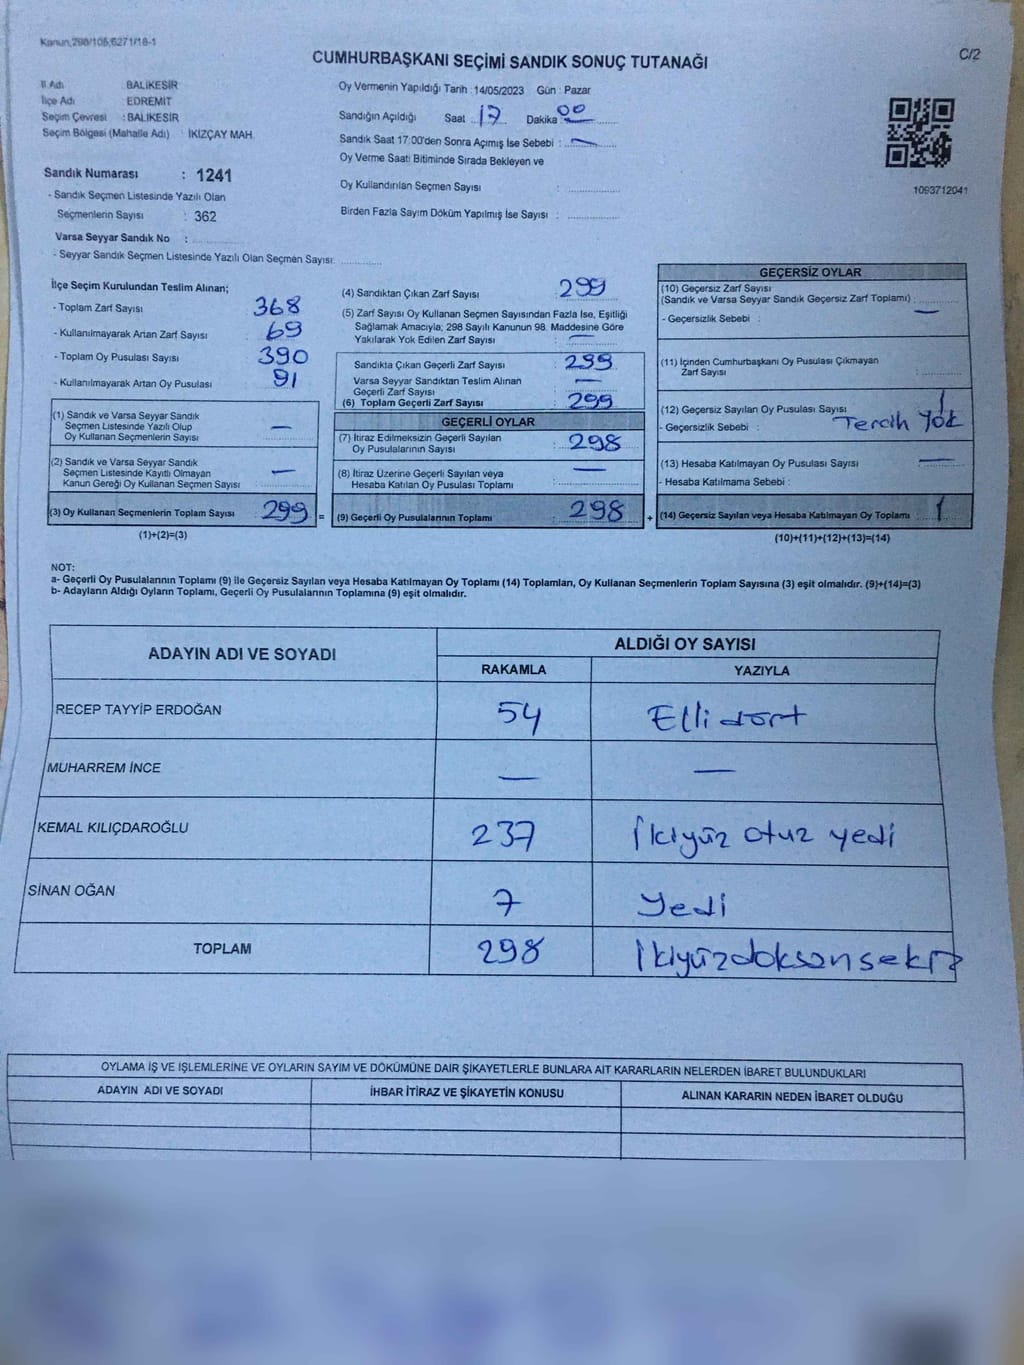 Kanun,298/105,6271/18-1
C/2
CUMHURBAŞKANI SEÇİMİ SANDIK SONUÇ TUTANAĞI
İl Adı : BALIKESİR
İlçe Adı : EDREMİT
Seçim Çevresi : BALIKESİR
Seçim Bölgesi (Mahalle Adı) : İKİZÇAY MAH.
Sandık Numarası : 1241
- Sandık Seçmen Listesinde Yazılı Olan
Seçmenlerin Sayısı : 362
Varsa Seyyar Sandık No :
- Seyyar Sandık Seçmen Listesinde Yazılı Olan Seçmen Sayısı:
Oy Vermenin Yapıldığı Tarih : 14/05/2023 Gün : Pazar
Sandığın Açıldığı Saat 17 Dakika 00
Sandık Saat 17:00'den Sonra Açımış İse Sebebi : —
Oy Verme Saati Bitiminde Sırada Bekleyen ve
Oy Kullandırılan Seçmen Sayısı :
Birden Fazla Sayım Döküm Yapılmış İse Sayısı :
1093712041
İlçe Seçim Kurulundan Teslim Alınan;
- Toplam Zarf Sayısı : 368
- Kullanılmayarak Artan Zarf Sayısı : 69
- Toplam Oy Pusulası Sayısı : 390
- Kullanılmayarak Artan Oy Pusulası : 91
(1) Sandık ve Varsa Seyyar Sandık
Seçmen Listesinde Yazılı Olup
Oy Kullanan Seçmenlerin Sayısı : —
(2) Sandık ve Varsa Seyyar Sandık
Seçmen Listesinde Kayıtlı Olmayan
Kanun Gereği Oy Kullanan Seçmen Sayısı : —
(3) Oy Kullanan Seçmenlerin Toplam Sayısı : 299 =
(1)+(2)=(3)
(4) Sandıktan Çıkan Zarf Sayısı : 299
(5) Zarf Sayısı Oy Kullanan Seçmen Sayısından Fazla İse, Eşitliği
Sağlamak Amacıyla; 298 Sayılı Kanunun 98. Maddesine Göre
Yakılarak Yok Edilen Zarf Sayısı : —
Sandıkta Çıkan Geçerli Zarf Sayısı : 299
Varsa Seyyar Sandıktan Teslim Alınan
Geçerli Zarf Sayısı : —
(6) Toplam Geçerli Zarf Sayısı : 299
GEÇERLİ OYLAR
(7) İtiraz Edilmeksizin Geçerli Sayılan
Oy Pusulalarının Sayısı : 298
(8) İtiraz Üzerine Geçerli Sayılan veya
Hesaba Katılan Oy Pusulası Toplamı : —
(9) Geçerli Oy Pusulalarının Toplamı : 298 +
GEÇERSİZ OYLAR
(10) Geçersiz Zarf Sayısı
(Sandık ve Varsa Seyyar Sandık Geçersiz Zarf Toplamı) : —
- Geçersizlik Sebebi :
(11) İçinden Cumhurbaşkanı Oy Pusulası Çıkmayan
Zarf Sayısı :
(12) Geçersiz Sayılan Oy Pusulası Sayısı : 1
- Geçersizlik Sebebi : Tercih Yok
(13) Hesaba Katılmayan Oy Pusulası Sayısı : —
- Hesaba Katılmama Sebebi :
(14) Geçersiz Sayılan veya Hesaba Katılmayan Oy Toplamı : 1
(10)+(11)+(12)+(13)=(14)
NOT:
a- Geçerli Oy Pusulalarının Toplamı (9) ile Geçersiz Sayılan veya Hesaba Katılmayan Oy Toplamı (14) Toplamları, Oy Kullanan Seçmenlerin Toplam Sayısına (3) eşit olmalıdır. (9)+(14)=(3)
b- Adayların Aldığı Oyların Toplamı, Geçerli Oy Pusulalarının Toplamına (9) eşit olmalıdır.
ADAYIN ADI VE SOYADI
ALDIĞI OY SAYISI
RAKAMLA YAZIYLA
RECEP TAYYİP ERDOĞAN 54 Elli dört
MUHARREM İNCE — —
KEMAL KILIÇDAROĞLU 237 İkiyüz otuz yedi
SİNAN OĞAN 7 Yedi
TOPLAM 298 İkiyüzdoksansekiz
OYLAMA İŞ VE İŞLEMLERİNE VE OYLARIN SAYIM VE DÖKÜMÜNE DAİR ŞİKAYETLERLE BUNLARA AİT KARARLARIN NELERDEN İBARET BULUNDUKLARI
ADAYIN ADI VE SOYADI İHBAR İTİRAZ VE ŞİKAYETİN KONUSU ALINAN KARARIN NEDEN İBARET OLDUĞU